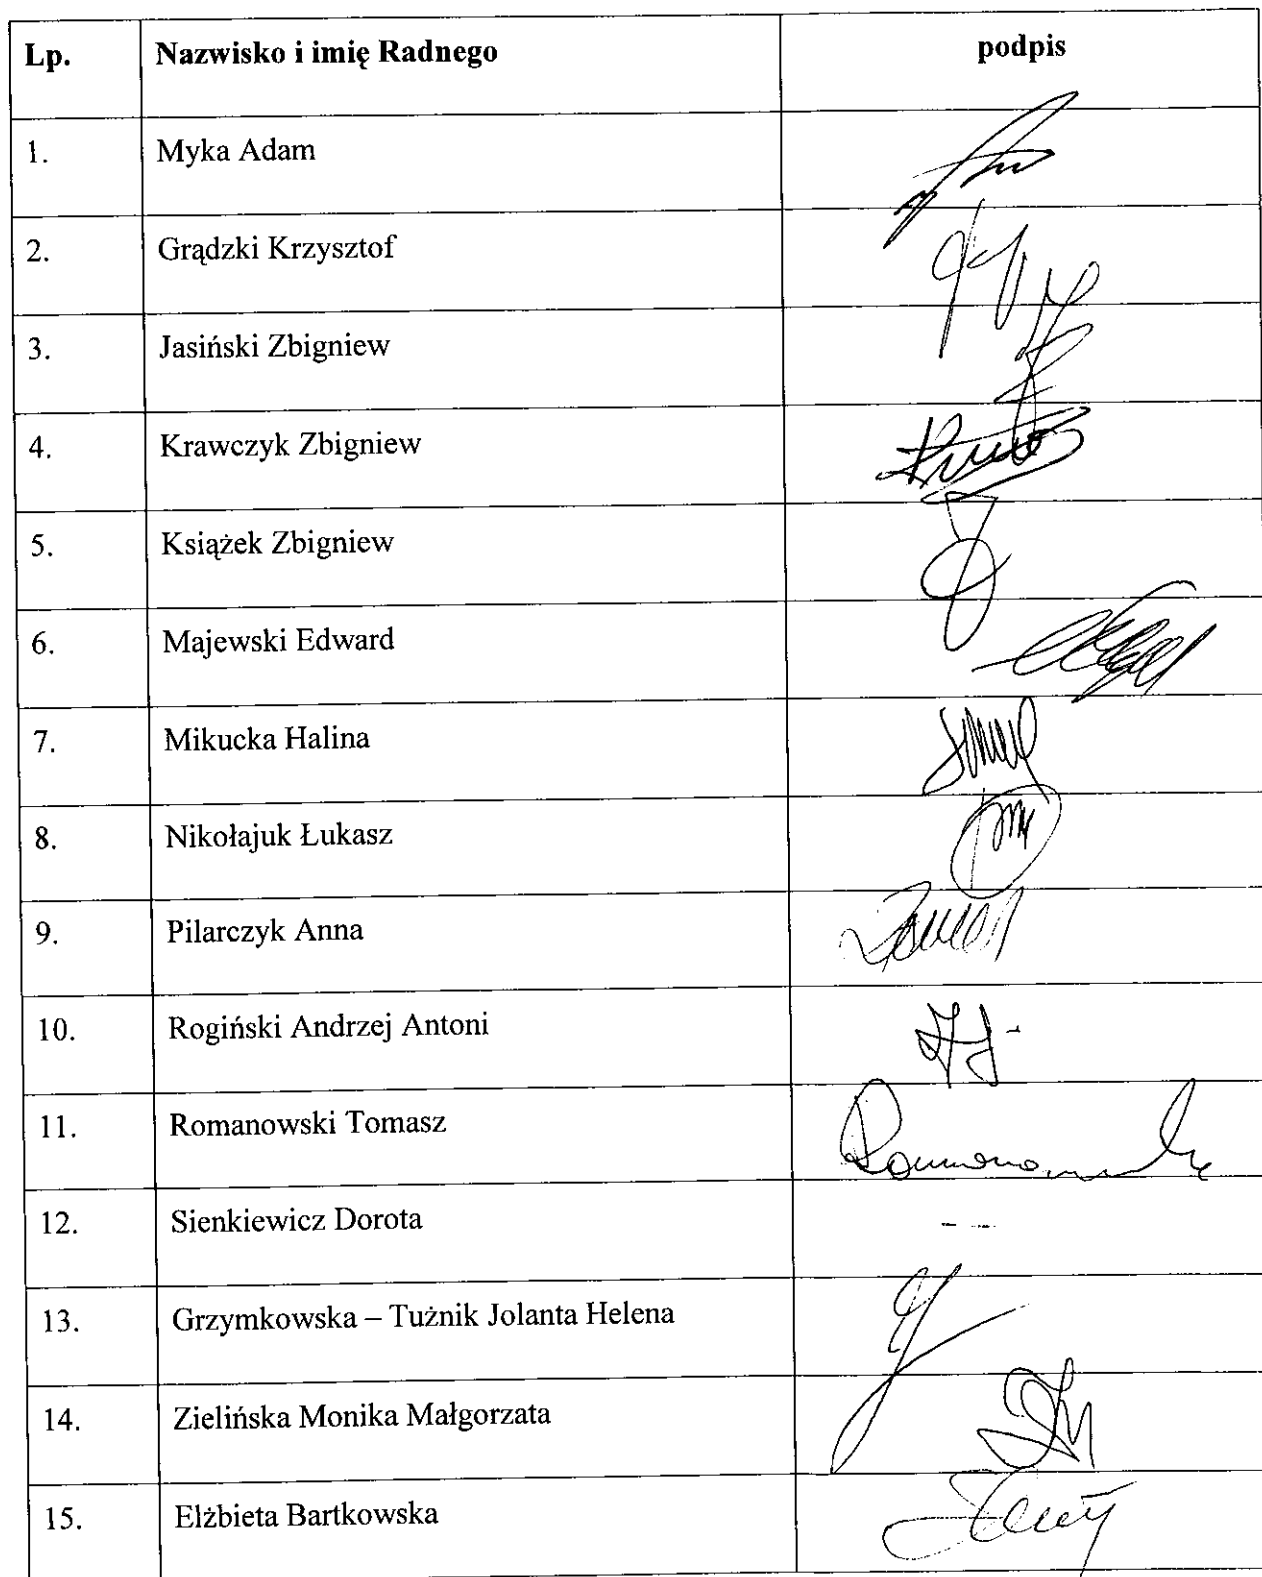 Lp. Nazwisko i imię Radnego podpis
1. Myka Adam
2. Grądzki Krzysztof
3. Jasiński Zbigniew
4. Krawczyk Zbigniew
5. Książek Zbigniew
6. Majewski Edward
7. Mikucka Halina
8. Nikołajuk Łukasz
9. Pilarczyk Anna
10. Rogiński Andrzej Antoni
11. Romanowski Tomasz
12. Sienkiewicz Dorota - --
13. Grzymkowska – Tużnik Jolanta Helena
14. Zielińska Monika Małgorzata
15. Elżbieta Bartkowska